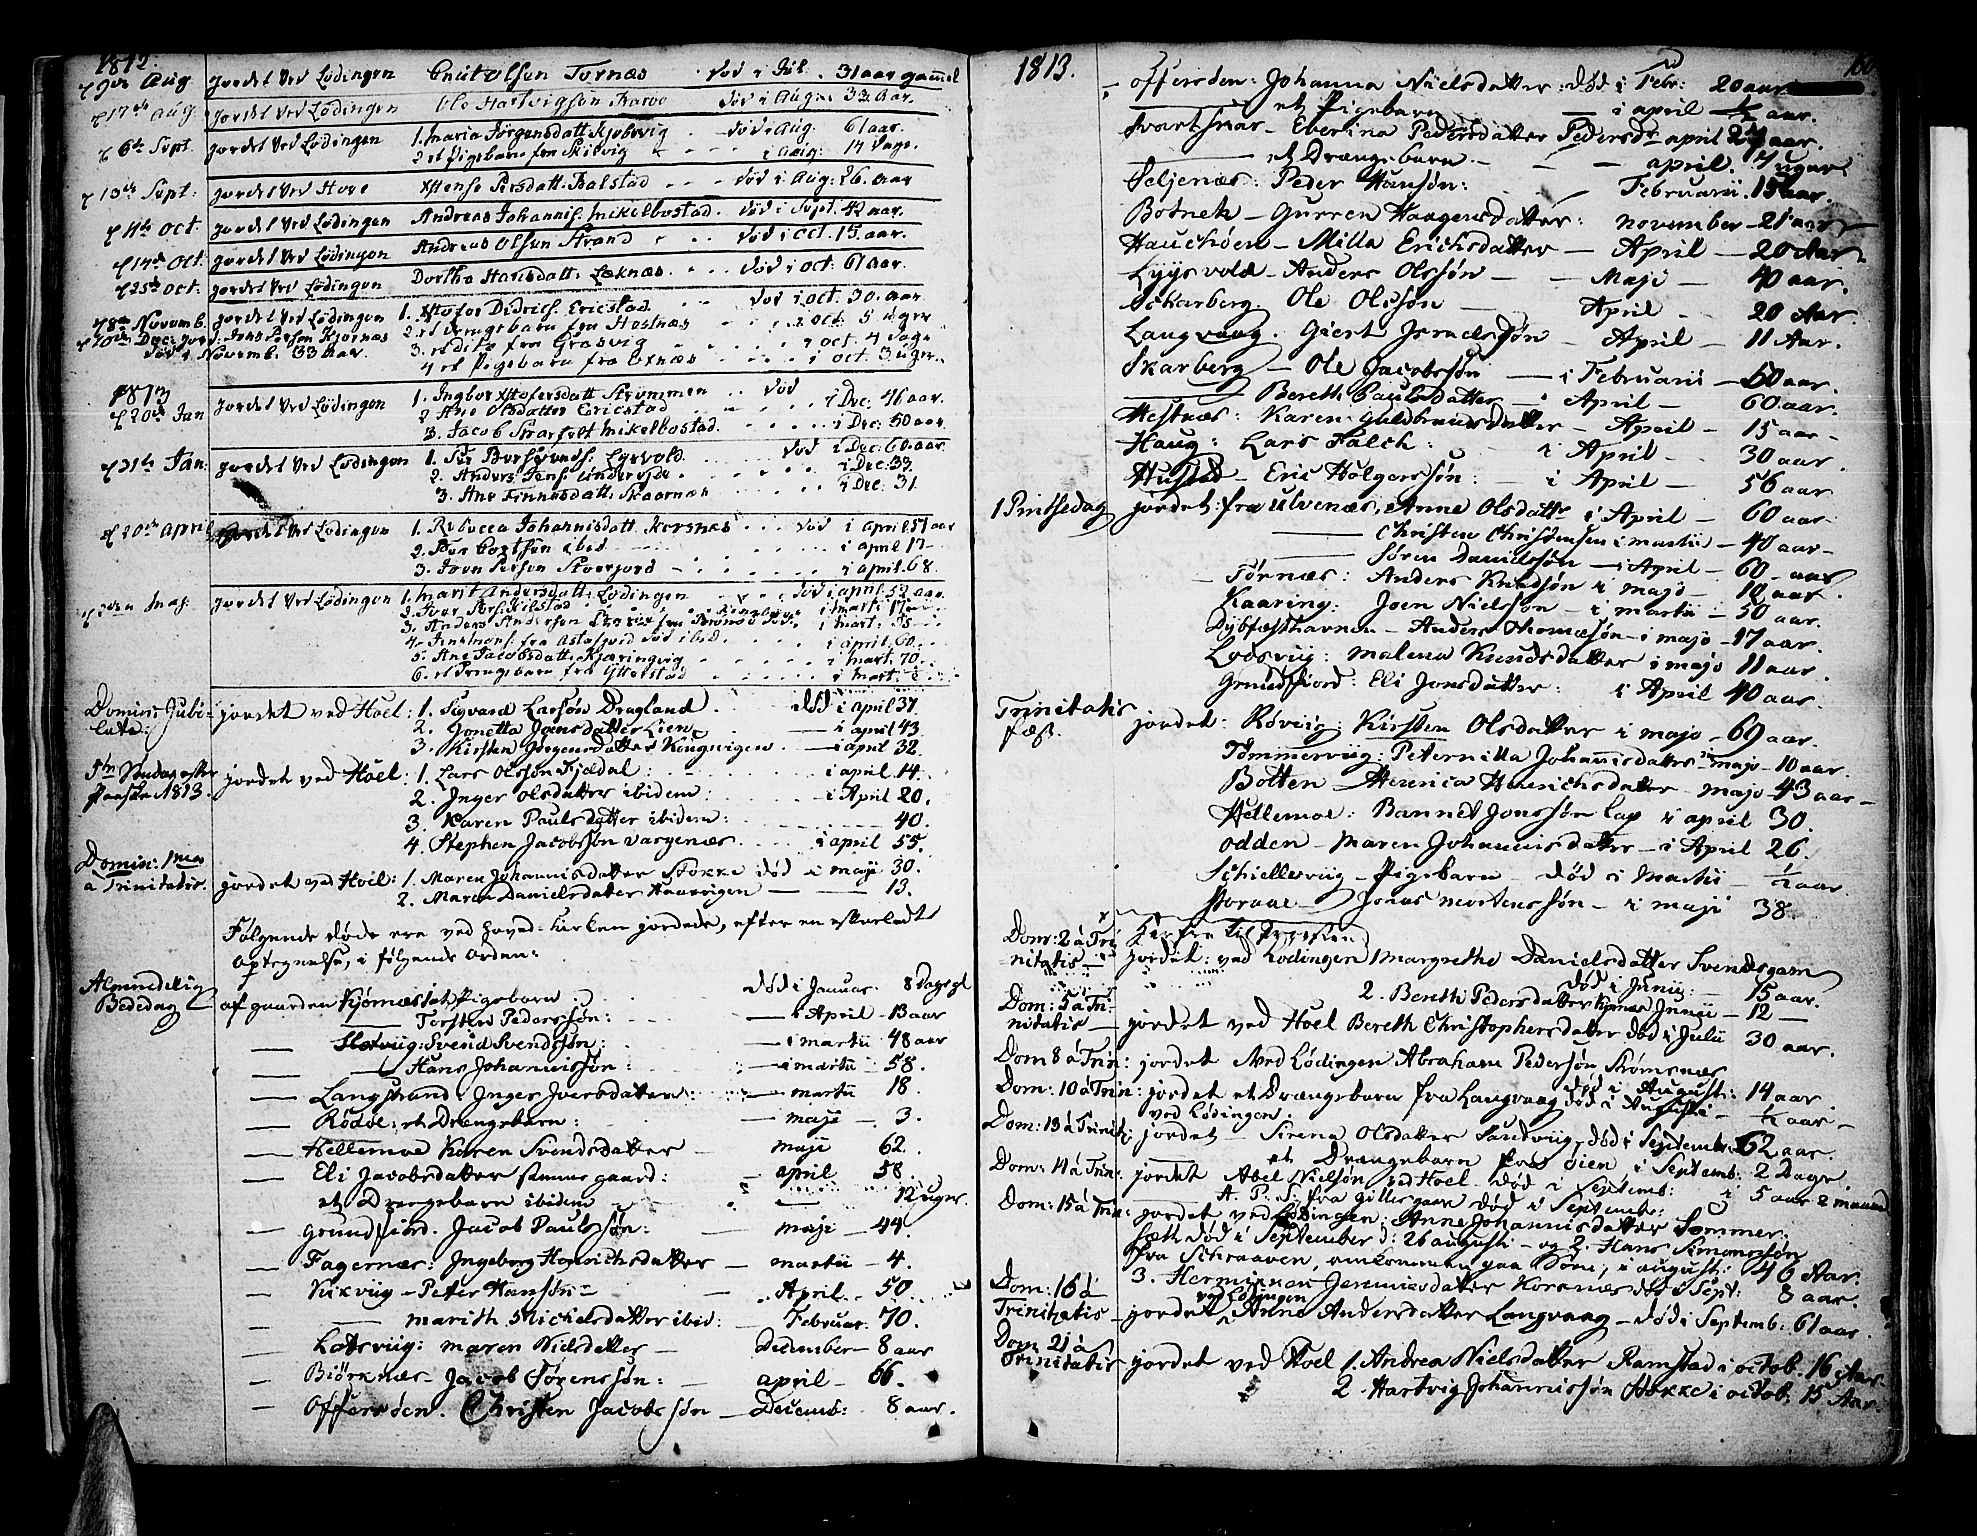 1812.
d 9de Aug jordet ved Lödingen Cnut Olsen Tornæs død i Jul. 31 aar gamel
d 17de Aug. jordet ved Lödingen Ole Hartvigsøn død i Aug. 33 aar.
d 6te Sept. jordet ved Lödingen 1. Maria Jörgensdatt. død i Aug: 61 aar.
2 et Pigebarn fra i Aug: 14 Dage.
d 13de Sept: jordet ved Hoel Persdatt: Balstad død i Aug: 26. aar
d 4de Oct. jordet ved Lödingen Andreas Johannis: Mikelbostad. død i Sept. 42 aar.
d 14de Oct. jordet ved Lödingen Andreas Olsen Strand død i Oct. 15. aar.
d 25de Oct. jordet ved Lödingen Dorthe Hansdatt: Leknæs død i Oct: 61 aar.
d 8de Novemb. jordet ved Lödingen 1. Xstofer Didrics. Ericstad død i Oct. 30. aar
d 20de Dec: jord: Jens Persen Kjornæs 2. et Drengebarn fra Hestnæs i Oct: 5 uger
død i Novemb. 33 aar. 3. et ditto fra i Oct. 4 Dage
4 et Pigebarn fra i Oct. 3 uger.
1813
d 20de Jan jordet ved Lödingen 1. Ingbor Xstofersdatt Strömmen død i Dec: 46 aar.
2 Ane Olsdatter Ericstad
3. Jacob Mikelbostad. i Dec: 50 aar.
d 31te Jan: jordet ved Lödingen 1. død i Dec: 60 aar
2. Anders Jens: i Dec: 33.
3. Ane Finnesdatt: Skaarnæs i Dec: 31.
d 20de April jordet ved Lödingen 1. Rebecca Johannisdatt. Korsnæs død i April 51 aar
2. ibid i April 17
3. Joen Persen i April 68.
jordet ved Lödingen 1. Marit Andersdatt: Lödingen død i April 52 aar.
2. Iver i Mart: 17
3. Anders Andersen i Mart: 35
4. ibid i April 60.
5. Ane Jacobsdatt: Kjæringvig i Mart. 70.
6. et Drengebarn fra Ytterstad i Mart.
Domin: Jubi- jordet ved Hoel: 1. Sigvard Larsøn Dragland. død i April 37
late: 2. Gonetta Jonsdatter Lien i April 43
3. Kirsten Jörgensdatter Kongsvigen i April 32.
5te Søndag efter jordet ved Hoel: 1. Lars Olssøn Fjeldal: i April 14.
Paaske 1813. 2. Inger Olsdatter ibidem: i April 20.
3. Karen Paulsdatter ibidem: 40.
4. Stephen Jacobssøn Vargenæs i April 55.
Domin: 1ma
a Trinitatis. jordet ved Hoel: 1. Maren Johannisdatter Stokke død i Maji 30.
2. Maren Danielsdatter 13.
Følgende døde ere ved Hoved-Kirken jordede, efter en efterladt
Optegnelse, i følgende Orden:
Almindelig af gaarden Kjörnæs: et Pigebarn: død i Januar. 8 Dage gl
Bededag Torsten Pedersøn: i April 13 aar
Slotviig: Svend Svendsøn: i Martii 48 aar
Hans Johannissøn: i Martii 58.
Langstrand: Inger Iversdatter: Martii 18.
Rödöe: et Drengebarn: Maji 3.
Hellemoe Karen Svendsdatter Maji 62.
Eli Jacobsdatter samme gaard: April 58
et Drengebarn ibidem 12 uger
Grundfiord. Jacob Paulssøn: Maji 44.
Fagernæs: Ingeborg Henrichsdatter Martii 4.
Vikviig Peter Hansøn April 50.
Marith Michelsdatter ibid: Februar: 70.
Lotsviig: Maren Nielsdatter December 8 aar
Biörknæs Jacob Sörenssøn: April 66.
Offersöen. Christen Jacobssøn Decemb: 8 aar.
1813.
Offersöen: Johanna Nielsdatter: død i Febr: 20 aar
et Pigebarn i April ½ aar.
Svartskar Everina Pedersdatter April 24 aar.
et Drængebarn April. 7 uger
Seljenæs: Peder Hansøn: Februarii. 15 aar.
Botneh Gurren Haagensdatter: November 21 aar
Hauchöen Milla Erichsdatter April 20 Aar.
Lyysvold Anders Olssøn Maji 40 aar.
Skarberg. Ole Olssøn April 20 Aar.
Langvaag. Giert Israelssøn April 11 Aar.
Skarberg Ole Jacobssøn i Februarii 60 aar.
Bereth Paulsdatter i April 60 aar.
Hestnæs: Karen Guldbrandsdatter April 15 aar
Haug: Lars Falch: i April 30 aar.
Hustad Eric Holgerssøn: i April 56 aar
1 Pintsedag jordet: fra Ulvenæs, Anne Olsdattr i April 60 aar
Christen Christensen i Martii 40 aar
Sören Danielssøn i April 60 aar
Törnæs: Anders Knudsøn i Majo 10 aar.
Kaaring: Joen Nielssøn i Martii 50 aar.
Dybfæsthavnen Anders Thomæsøn i Majo 17 aar.
Lodsviig: Malena Knudsdatter i Majo 11 aar.
Grundfiord: Eli Jonsdatter: i April 40 aar.
Trinitatis jordet: Röviig: Kirsten Olsdatter i Majo 69 aar.
fæst. Tömmerviig: Peternilla Johannisdatter Majo 10 aar.
Botten Henrica Henrichsdatter Majo 43 aar
Hellemoe: Bannet Jonssøn Lap i April 30.
Odden Maren Johannisdatter i April 26.
Schiellesviig Pigebarn død i Martii ½ aar.
Joras Mortenssøn i Maji 38
Dom: 2 á Tri
nitatis jordet: ved Lödingen 1 Margrethe Danielsdatter Svendsgam
død i Junii: 15 aar.
Dom: 5 á Tri 2. Bereth Pedersdatter Junii 12
nitatis jordet ved Hoel Bereth Christophersdatter død i Julii 30 aar.
Dom 8 á Trin: jordet ved Lödingen Abraham Pedersøn Strömsnæs
død i Augusti: 14 aar
Dom: 10 á Trin: jordet et Drængebarn fra Langvaag død i Augusti ½ aar
ved Lödingen.
Dom: 13 á Trinit: jordet Sirena Olsdatter Sandviig, død i September 62 aar.
et Drængebarn fra Öien i Septemb: 2 Dage
Dom: 14 á Trin: jordet Abel Nielsøn ved Hoel død i Septemb: 5 aar 2 maaned
A. P. S. fra død i Septemb:
Dom: 15 á Trin: jordet ved Lödingen: Anne Johannisdatter Sommer
sæth død i September d: 26 Augusti og 2. Hans Simonssøn
fra Schraaven, omkommen paa Söen, i August: 46 Aar.
3. Jenniesdatter Korsnæs død i Sept: 8 aar.
Dom: 16 á ved Lödingen
Trinitatis jordet Anne Andersdatter Langvaag død i Septemb: 61 aar.
Dom 21 á
Trinitatis jordet ved Hoel 1. Andrea Nielsdatter Ramstad i Octob. 16 Aar.
2. Hartvig Johannissøn Stokke i Octob. 15 Aar.